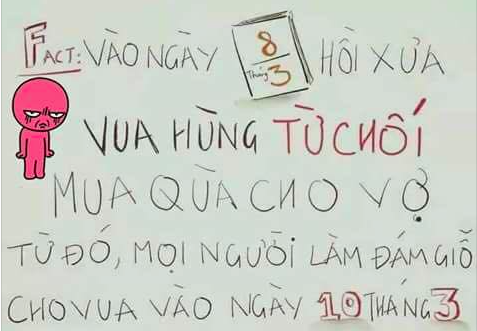 FACT: VÀO NGÀY 8 Tháng 3 HỒI XƯA
VUA HÙNG TỪ CHỐI
MUA QUÀ CHO VỢ
TỪ ĐÓ, MỌI NGƯỜI LÀM ĐÁM GIỖ
CHO VUA VÀO NGÀY 10 THÁNG 3